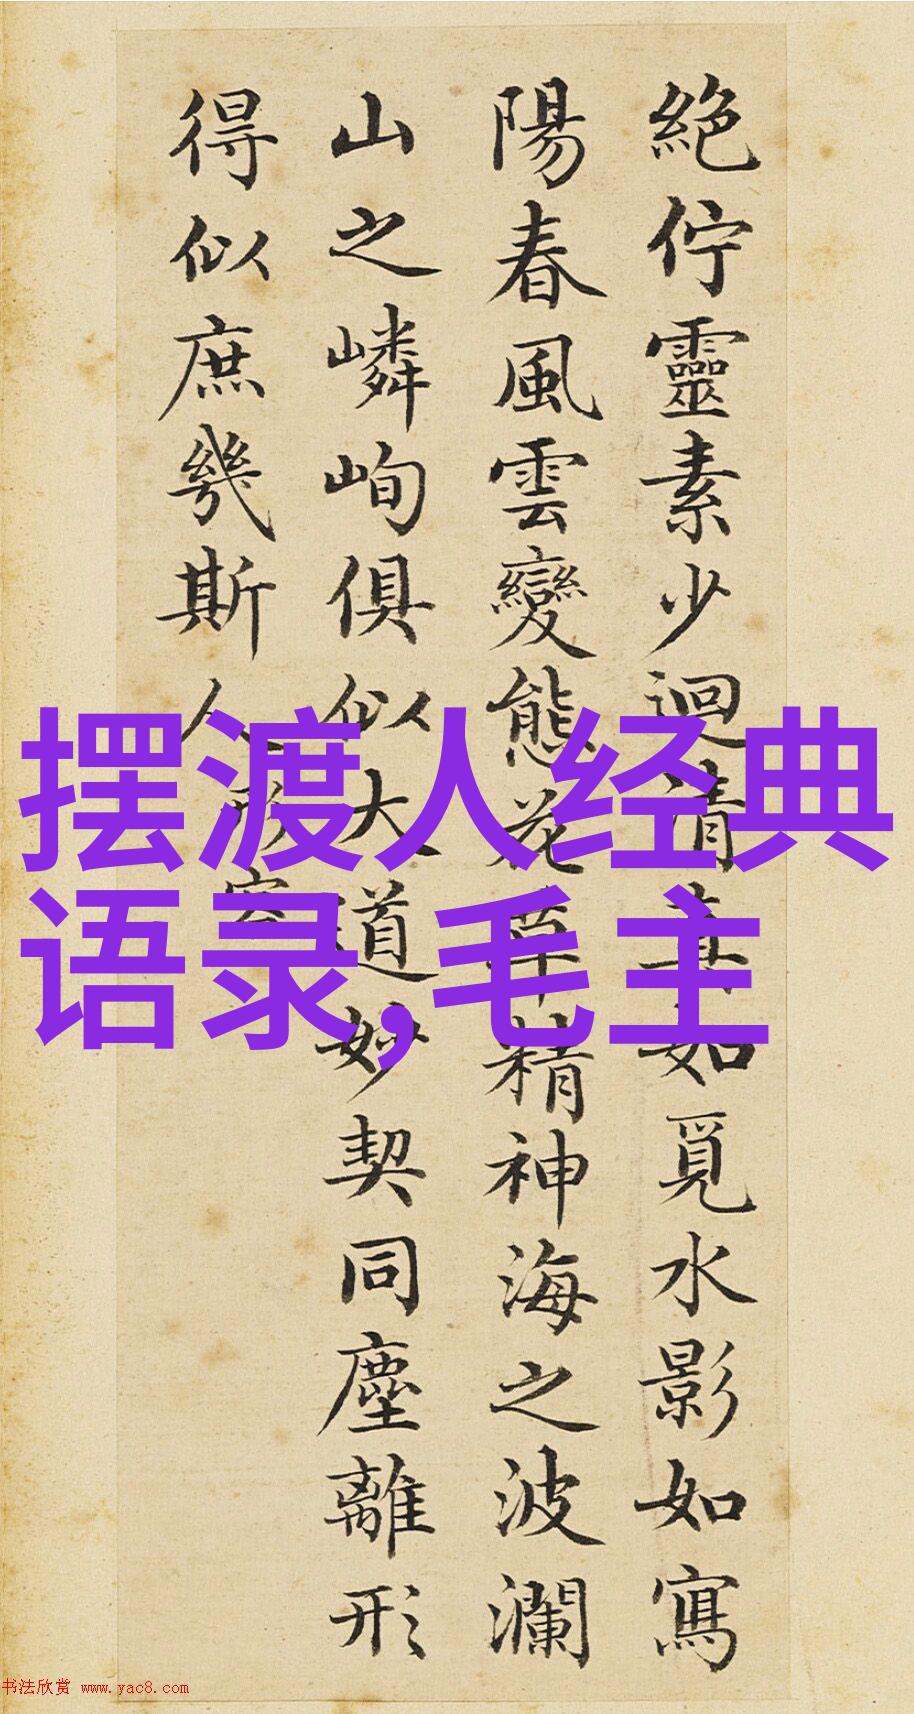 絶佇靈素少迴清真如覓水影如寫
陽春風雲變態花草精神海之波瀾
山之嶙峋俱似大道妙契同塵離形
得似庶幾斯人
形容
摆渡人经典
语录,毛主
书法欣赏 www.yac8.com